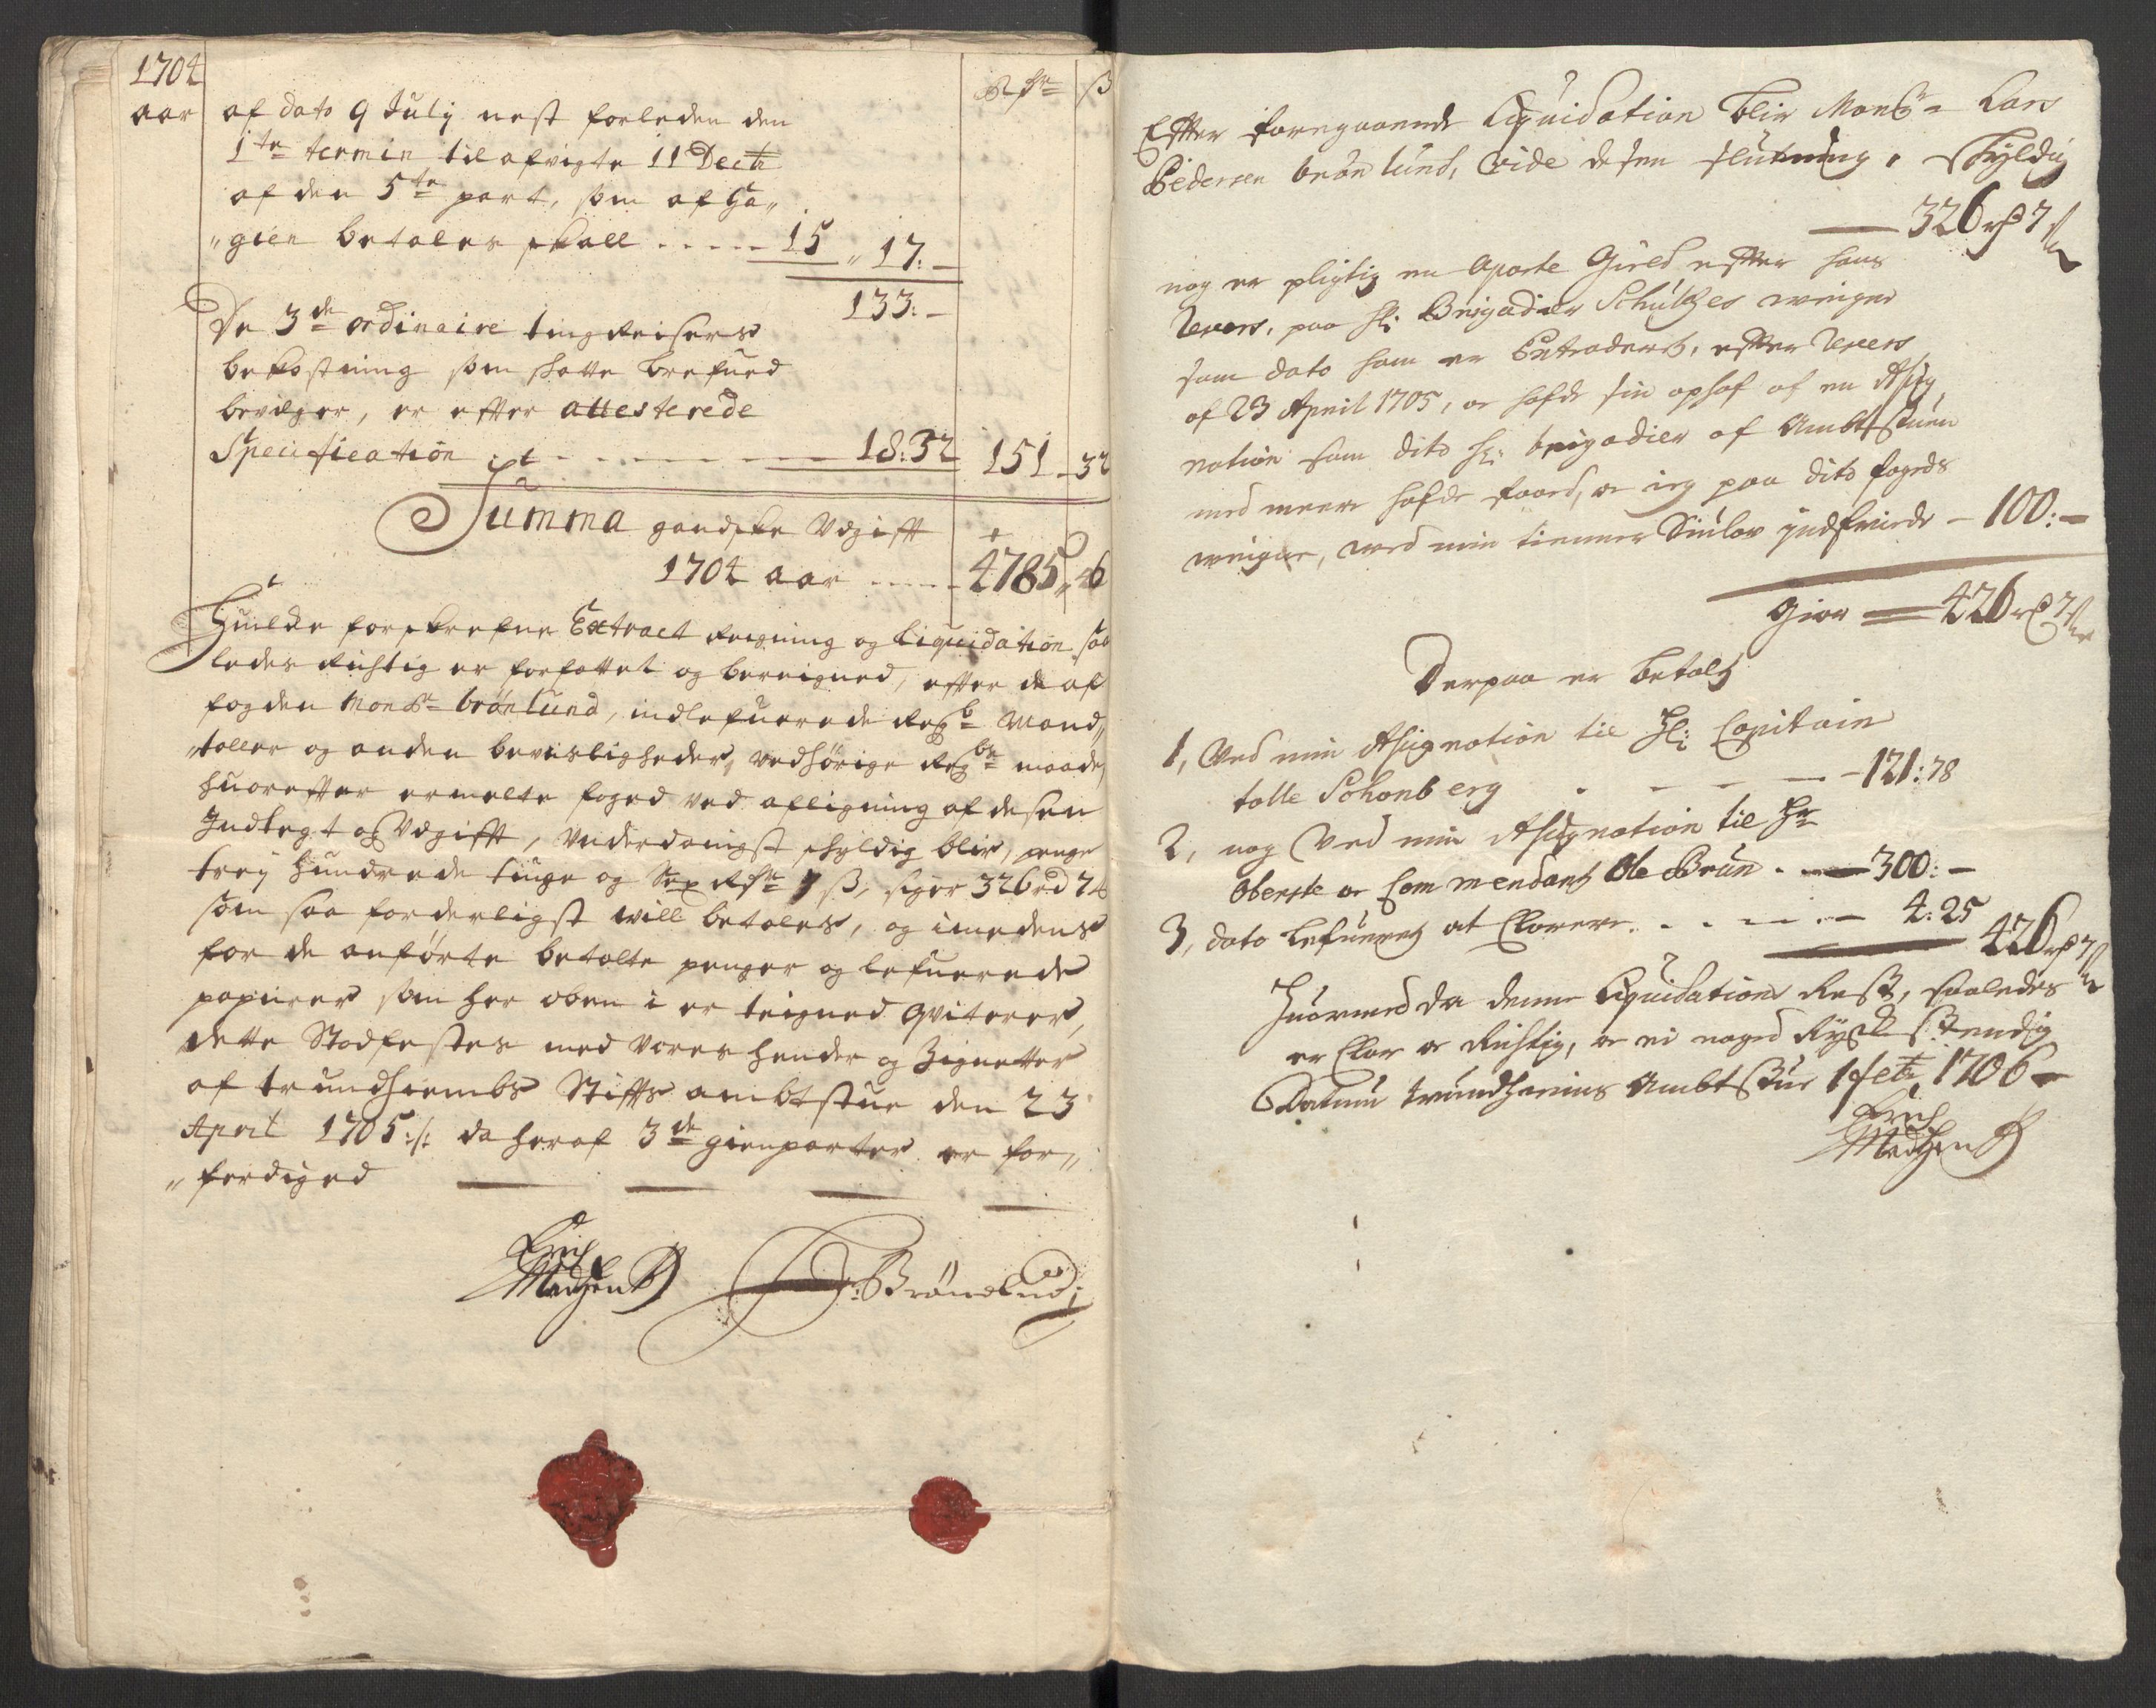 1704
aar
Rdr ß
af dato 9 July nest forleden den
1te termin til afvigte 11 Decb
af den 5te part, som af Ha„
„gien betales skall ..... 15 „ 17. –
133. –
De 3de ordinaire tingreisers
bekostning som skatte brefued
bevilger, er efter attesterede
Specification ..... 18:32 151 – 32
Summa gandske Udgifft
1704 aar ..... 4785 „ 46
Huilcke forskrefne Extract Reigning og Liquidation saa
ledes Richtig er forfattet og bereigned, efter de af
fogden Monsr Brönlund, indlefuerede Regb Mand„
„taller og anden bevisligheder, vedhørige Regbr maade,
huorefter ermelte foged ved afligning af desen
Indtegt og Udgifft, Underdanigst schyldig blir, penge
trej Hundrede tiuge og Sex Rdr 7 ß, siger 326 rd 7 ß
som saa forderligst will betales, og imedens
for de anførte betalte penger og lefuerede
papirer som her oben i er teigned qviterer,
dette Stadfestes med Vores hender og Zignetter
af trundhiembs Stiffts ambtstue den 23
April 1705 :/: da heraf 3de gienparter er for„
„ferdiged
Erich
Madtzen
Brönelund
Effter foregaaende Liquidation blir Monsr Lars
Pedersen brönlund, vide desen slutning, skyldig
326 rd 7 ß
nog er pligtig en aparte Gield effter hans
Revers, paa Hr: Brigadier Schültzes weigne
som dato ham er Extraderet, effter Revers
af 23 April 1705, oc hafde sin ophaf af en Assig
nation som dito Hr: brigadier af Ambtstuen
med meere hafde faaed, oc ieg paa dito fogeds
weigne, med min tienner Sinlov indfriede – 100: –
Giør 426 rd 7 ß
Derpaa er betalt
1, Ved min Assignation til Hr: Capitain
talle Schonberg ..... 121:78
2, nog Ved min Assignation til Hr
Oberste oc Commendant Ole Brun . 300: –
3, dato lefueret at Clarere ..... 4:25
426 rd 7 ß
Huormed da denne Liquidations Rest, saaledes
er Clar oc Richtig, oc ei noged Ryg stendig
Datum trundhiems Ambtstue 1 feb. 1706
Erich
Madtzen